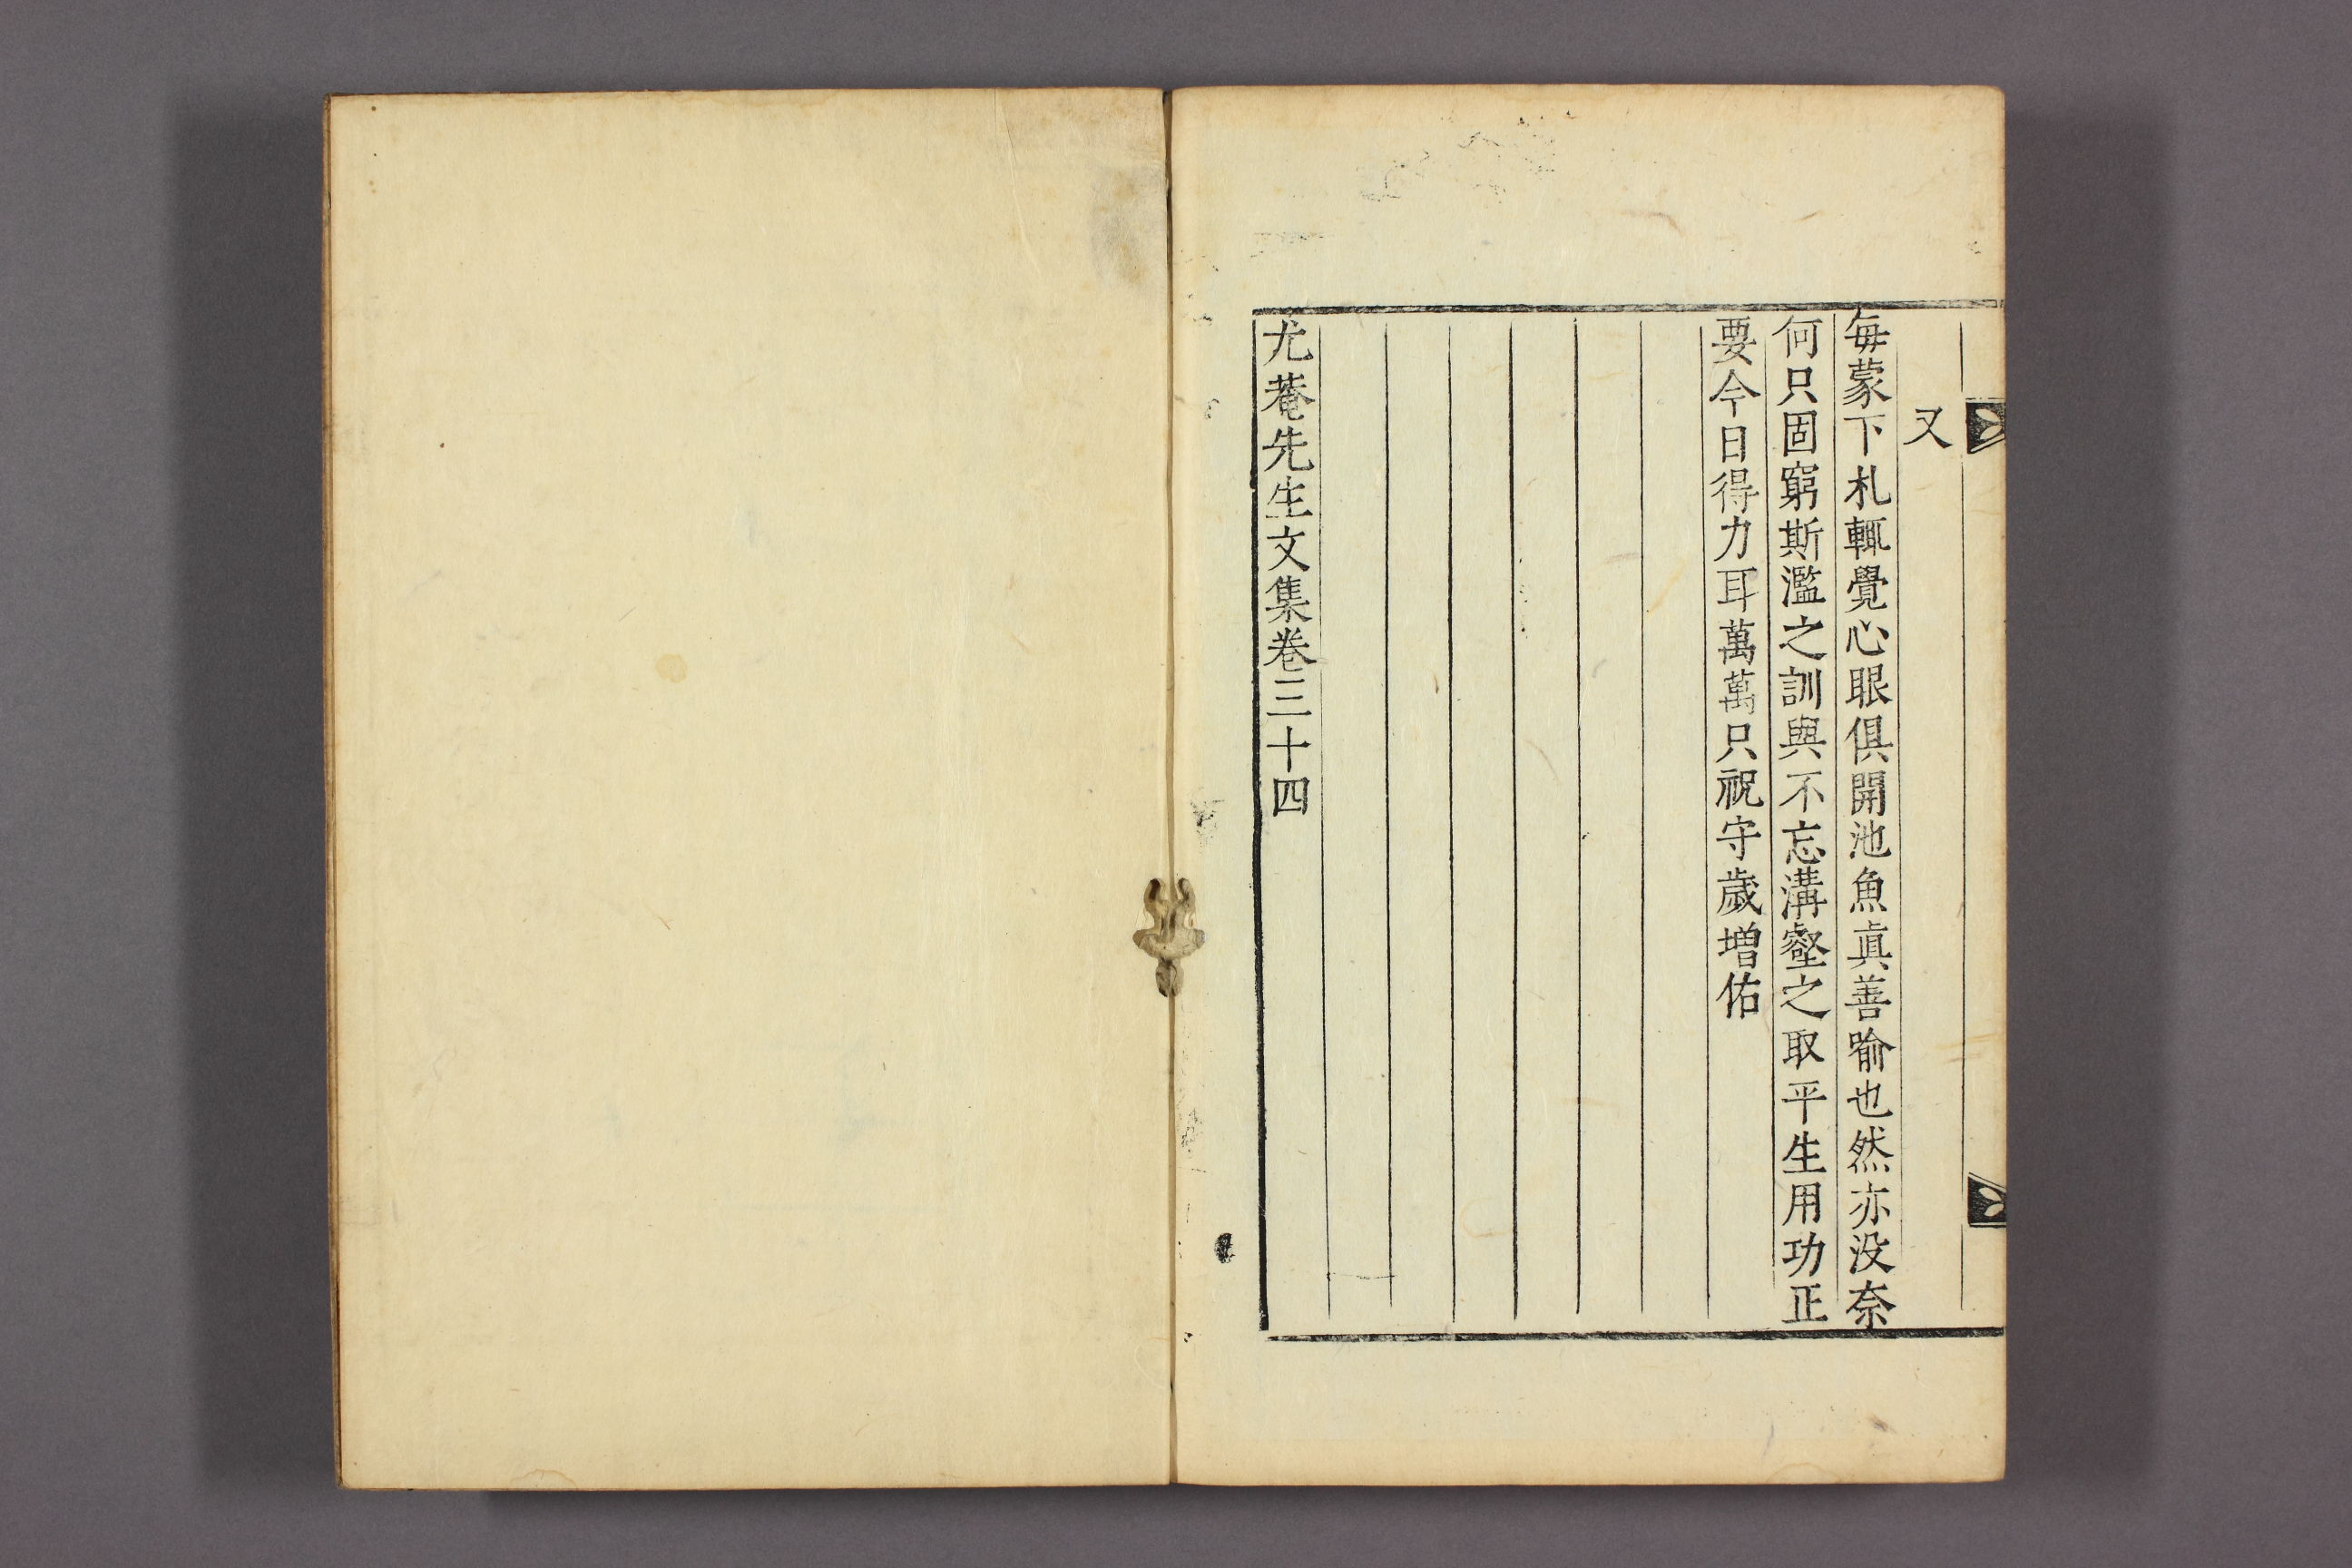 又
每蒙下札輒覺心眼俱開池魚眞善喩也然亦没奈
何只固窮斯濫之訓與不忘溝壑之取平生用功正
要今日得力耳萬萬只祝守歲增佑
尤菴先生文集卷三十四